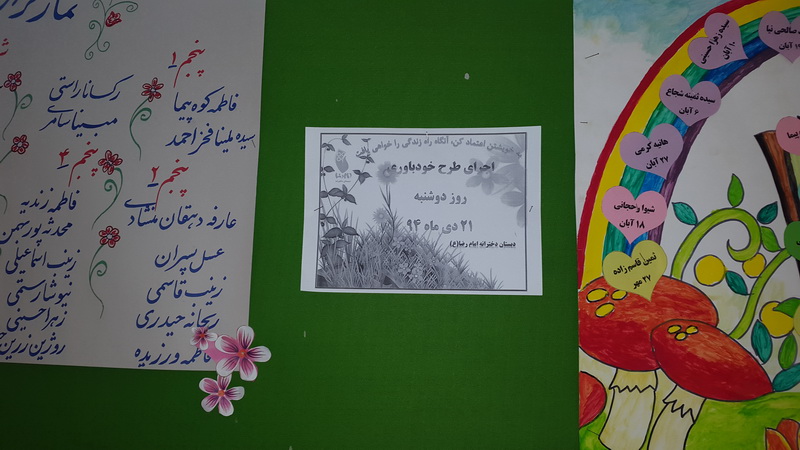 نماز
پنجم ۱
فاطمه کوه پیما
سیده یلینا فخر احمد
رکسانا راستی
مبینا سامری
پنجم ۲
عارفه دهقان منشادی
عسل سپران
زینب قاسمی
ریحانه حیدری
فاطمه ورزیده
پنجم ۴
فاطمه زندیه
محدثه پورسهمن
زینب اسماعیلی
نیوشا رستمی
زهرا حسینی
روژین زرین
خویشتن اعتماد کن، آنگاه راه زندگی را خواهی یافت
اجرای طرح خودباوری
روز دوشنبه
۲۱ دی ماه ۹۴
دبستان دخترانه امام رضا(ع)
صالحی نیا
آبان
سیده زهرا حسینی
۱۰ آبان
سیده ثمینه شجاع
۶ آبان
هانیه کرمی
۲۷ آبان
شیوا رجحانی
۱۸ آبان
ثمین قاسم زاده
۲۷ مهر